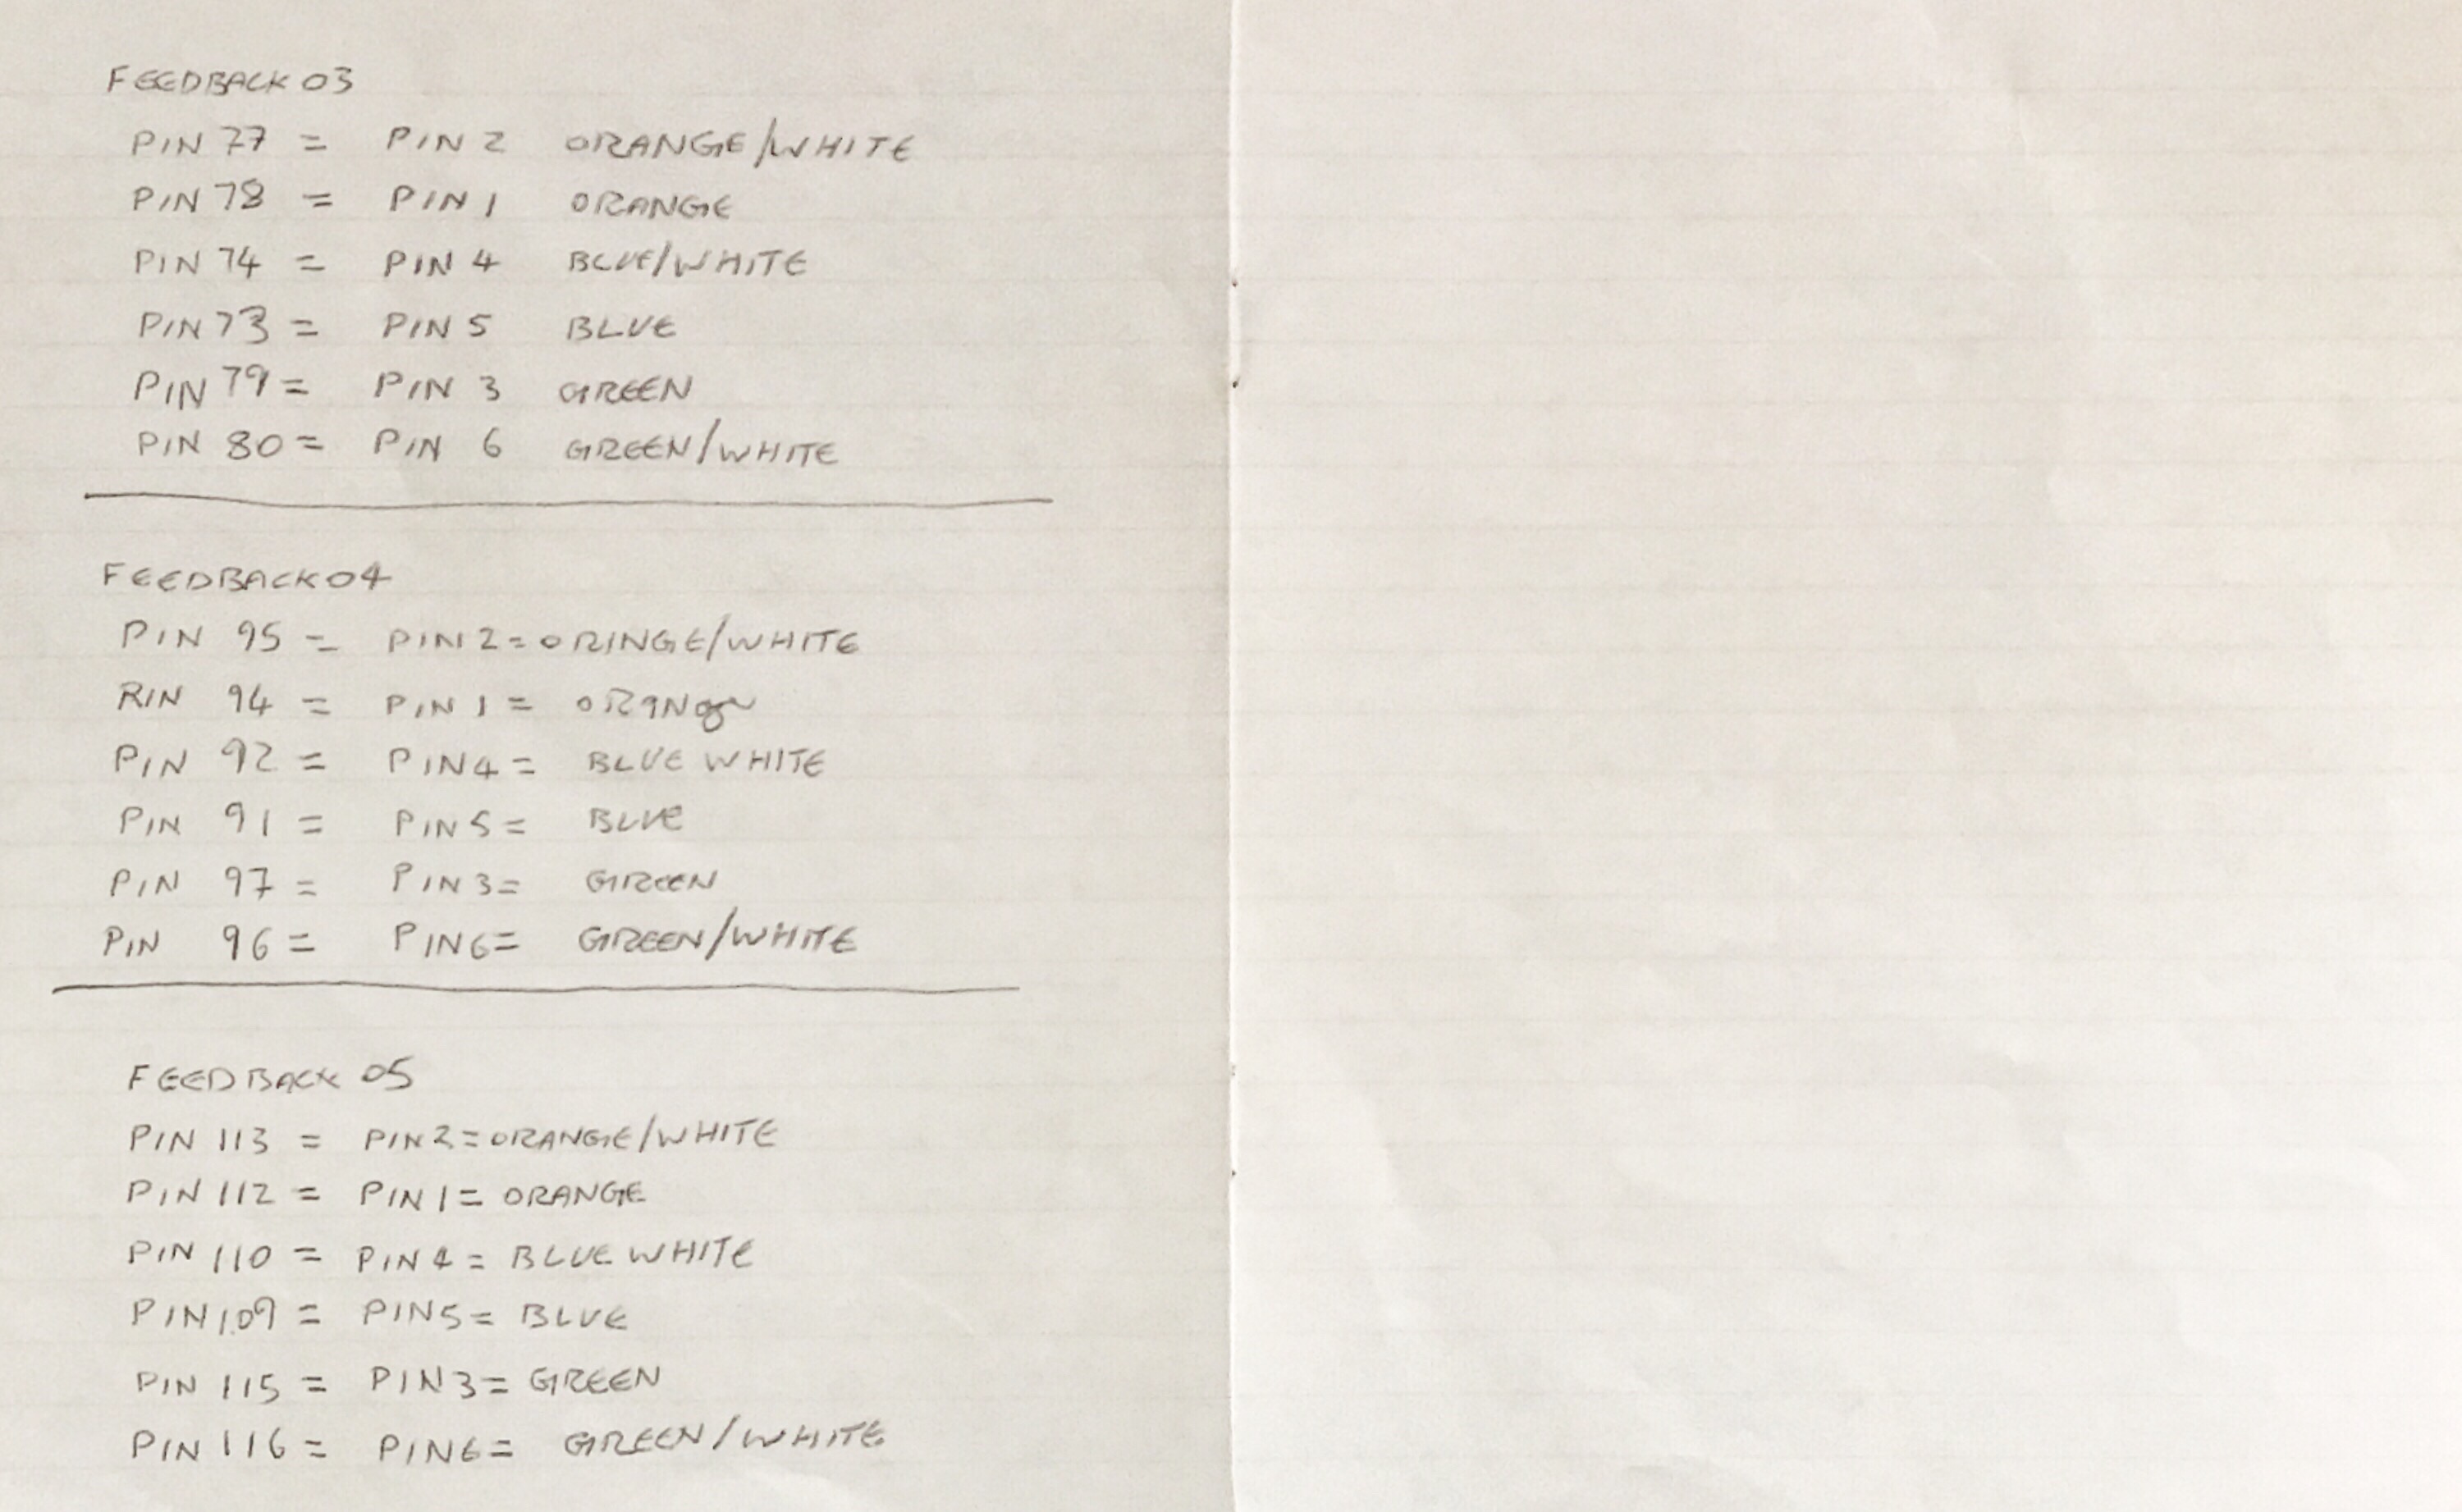 FEEDBACK 03
PIN 77 = PIN 2 ORANGE/WHITE
PIN 78 = PIN 1 ORANGE
PIN 74 = PIN 4 BLUE/WHITE
PIN 73 = PIN 5 BLUE
PIN 79 = PIN 3 GREEN
PIN 80 = PIN 6 GREEN/WHITE
FEEDBACK 04
PIN 95 = PIN 2 = ORINGE/WHITE
PIN 94 = PIN 1 =
PIN 92 = PIN 4 = BLUE WHITE
PIN 91 = PIN 5 = BLUE
PIN 97 = PIN 3 = GREEN
PIN 96 = PIN 6 = GREEN/WHITE
FEEDBACK 05
PIN 113 = PIN 2 = ORANGE/WHITE
PIN 112 = PIN 1 = ORANGE
PIN 110 = PIN 4 = BLUE WHITE
PIN 109 = PIN 5 = BLUE
PIN 115 = PIN 3 = GREEN
PIN 116 = PIN 6 = GREEN/WHITE